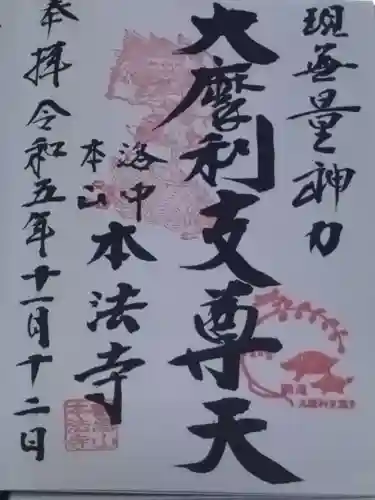 現無量神力
大摩利支尊天
洛中
本山
本法寺
奉拝令和五年十一月十二日